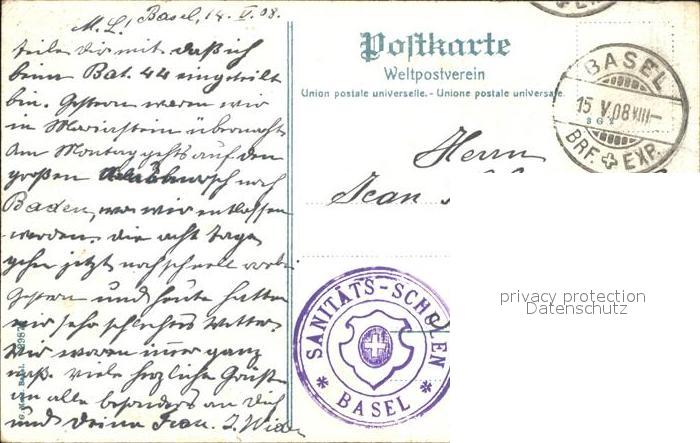 Basel, 14. V. 08.
M. L.!
teile dir mit daß ich
beim Bat. 44 eingeteilt
bin. Gestern waren wir
in Mariastein übernacht.
Am Montag gehts auf den
großen nach
Baden, wo wir entlassen
werden. die acht Tage
gehen jetzt noch schnell vorbei
Gestern und heute hatten
wir sehr schlechtes Wetter.
Wir waren immer ganz
naß. viele herzliche Grüße
an alle besonders an dich
und deine Frau. J.
Postkarte
Weltpostverein
Union postale universelle. - Unione postale universale.
BASEL
15 V.08 VIII-
BRF. EXP.
Herrn
Jean
SANITÄTS-SCHULEN
* BASEL *
privacy protection
Datenschutz